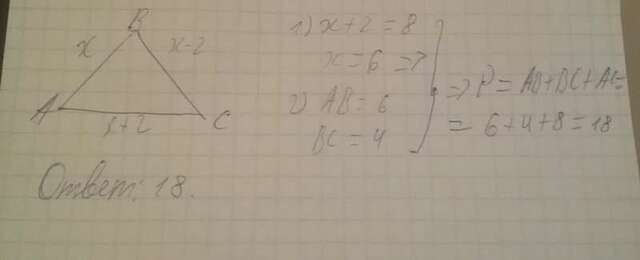 B
x
x-2
A
x+2
C
1) x+2=8
x=6 =>
2) AB=6
BC=4
=> P=AB+BC+AC=
=6+4+8=18
Ответ: 18.